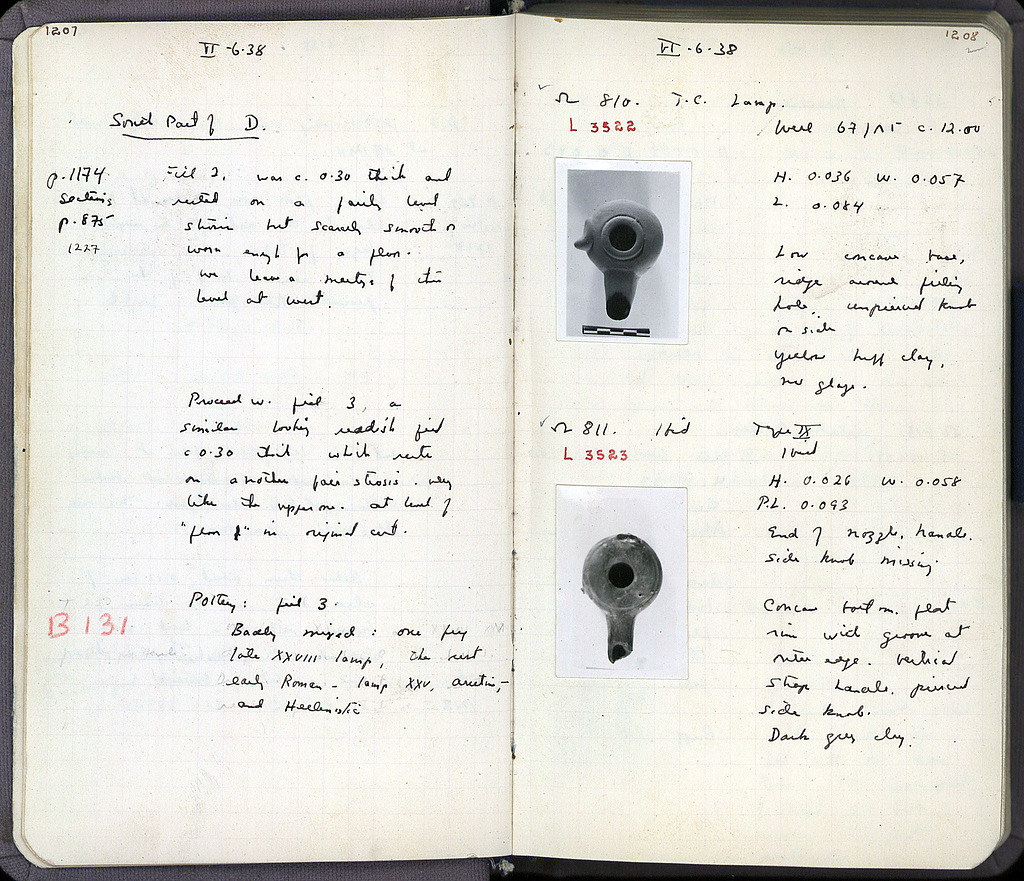 1207
VI-6-38
South Part of D.
p. 1174
sections
p. 875
1227
Fill 2, was c. 0.30 thick and
rested on a fairly level
strosis but scarcely smooth or
worn enough for a floor.
We leave a martyr of this
level at west.
Proceed w. fill 3, a
similar looking reddish fill
c 0.30 thick which rests
on another fair strosis. very
like the upper one. at level of
"floor" in original cut.
Pottery: fill 3.
B 131
Badly mixed: one frg
late XXVIII lamp, the rest
early Roman - lamp XXV, arretine,
and Hellenistic
1208
VI-6-38
Ω 810. T.C. Lamp.
L 3522
Well 67/ΛΕ c. 12.00
H. 0.036 W. 0.057
L. 0.084
Low concave base,
ridge around filling
hole, unpierced knob
on side
yellow buff clay,
no glaze.
Ω 811. Ibid
L 3523
Type IX
Ibid
H. 0.026 W. 0.058
P.L. 0.093
End of nozzle, handle,
side knob missing.
Concave bottom. flat
rim with groove at
outer edge. vertical
strap handle, pierced
side knob.
Dark grey clay.